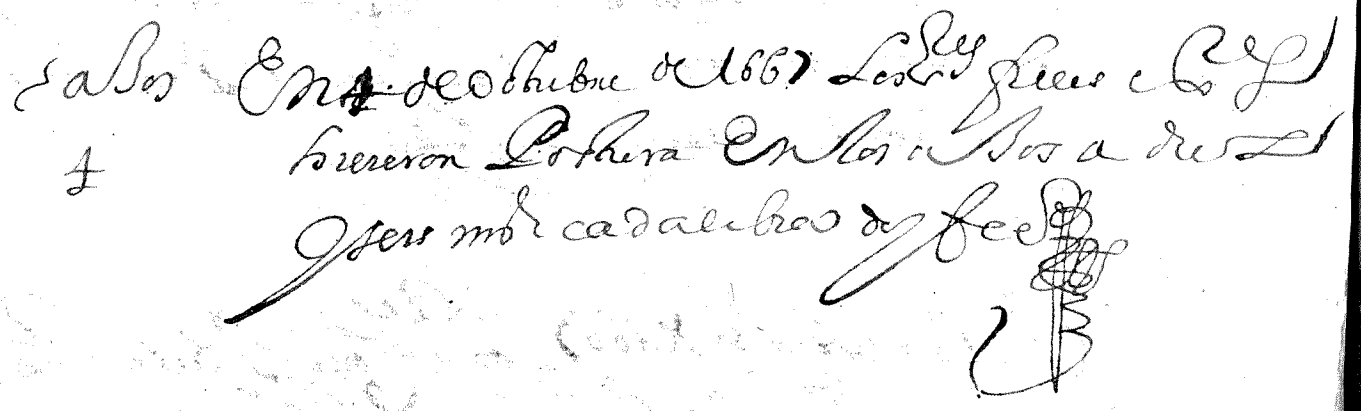 rabos En 4 de octubre de 1667 Los Res fieles e
hicieron Postura En los rabos a diez
y seis mrs cada libra doy fee
4